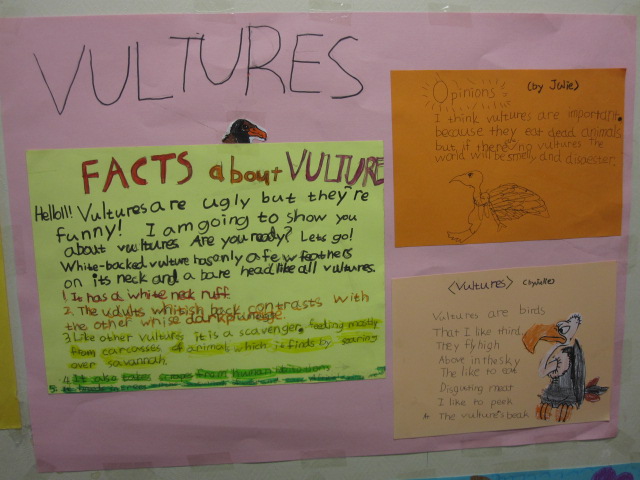 VULTURES
FACTS about VULTURE
Hello!! Vultures are ugly but they're
funny! I am going to show you
about vultures. Are you ready? Lets go!
White-backed vulture has only a few feathers
on its neck and a bare head like all vultures.
1. It has a white neck ruff.
2. The adults whitish back contrasts with
the other wise dark plumage.
3. Like other vultures it is a scavenger, feeding mostly
from carcasses of animals which it finds by soaring
over savannah.
4. It also takes scraps from human
5. It
Opinions (by Julie)
I think vultures are important
because they eat dead animals
but if there no vultures the
world will be smelly and
<Vultures>
Vultures are birds
That I like third
They fly high
Above in the sky
The like to eat
Disgusting meat
I like to peek
At The vulture's beak